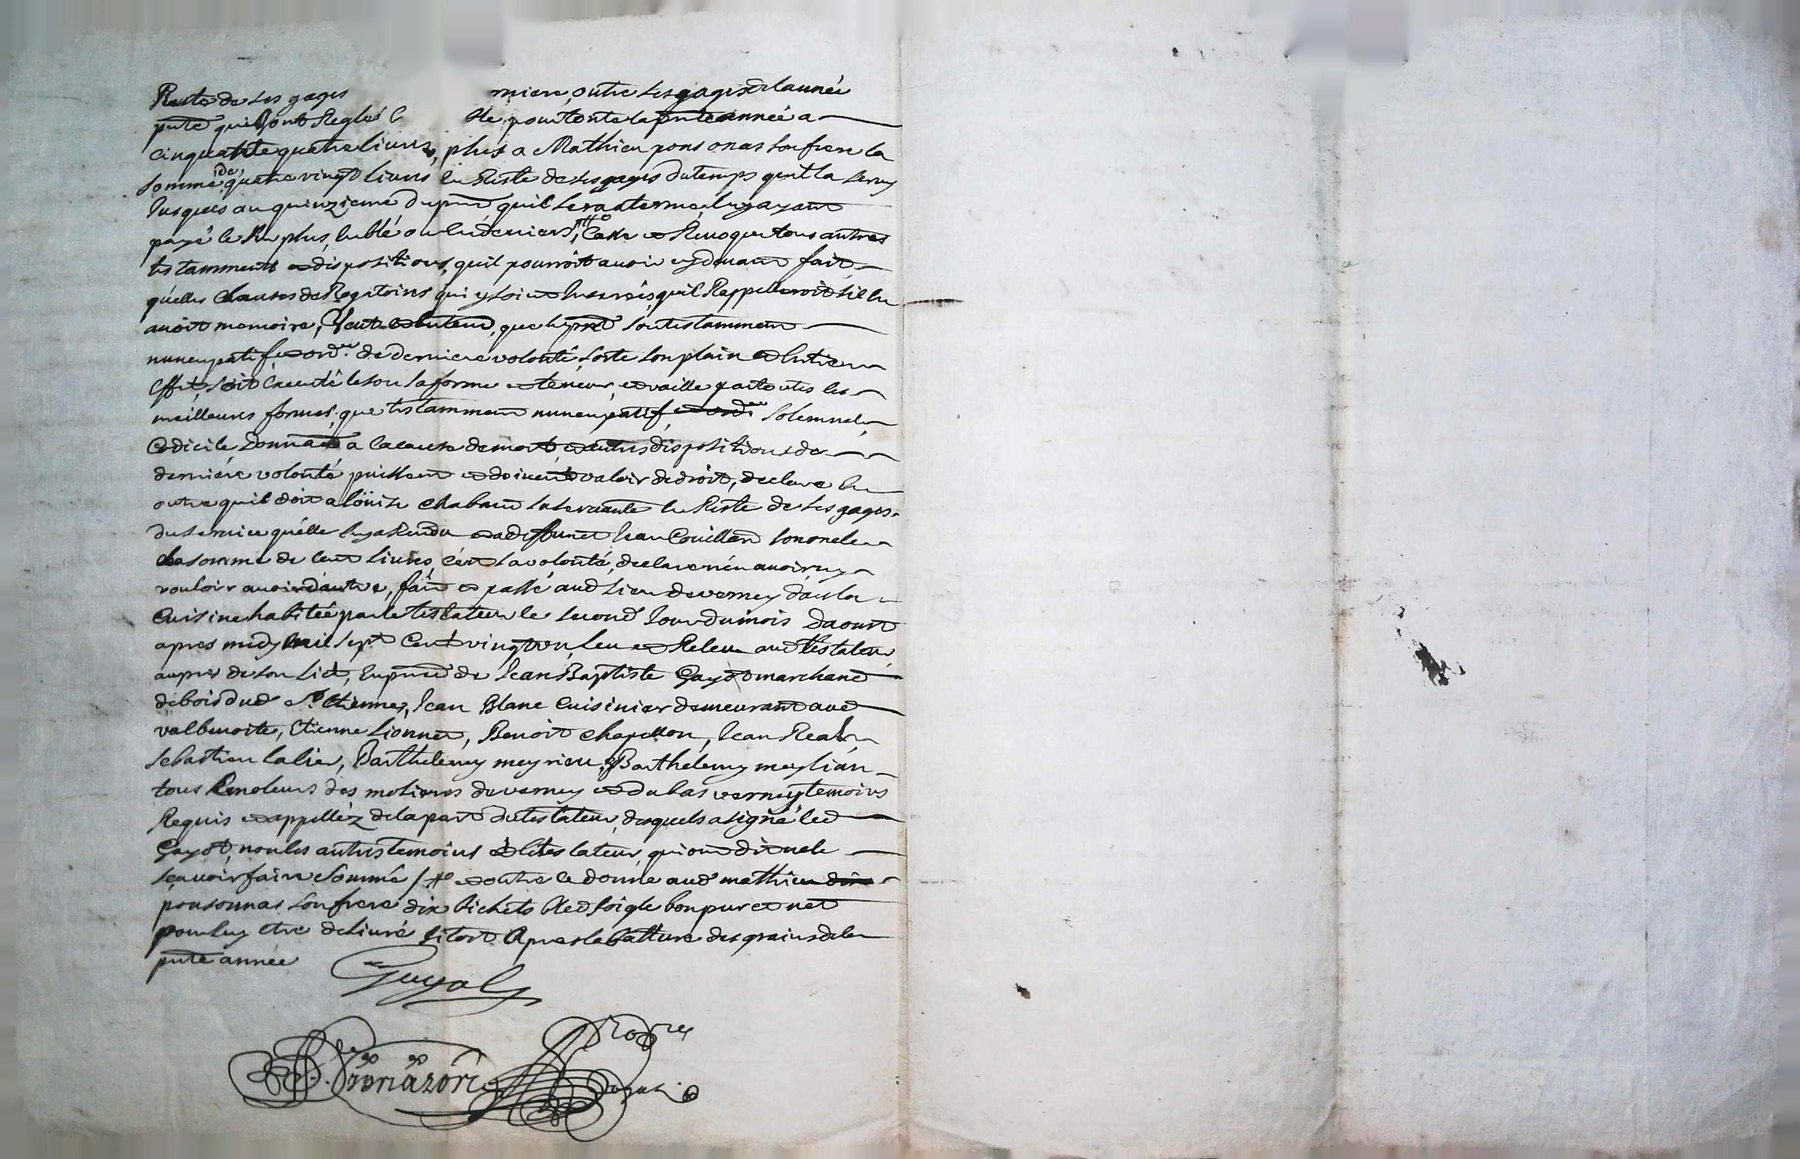 Reste de ses gages miere, outre ses gages de lannée
pnte quils ont Reglés lle pour toute la pnte année a
cinquante quatre livres, plus a Mathieu ponsonas son frere la
somme de quatre vingt livres en Reste de ses gages du temps quil la servy
Jusques au quinzieme du pnt quil sera a terme, luy ayant
payé le surplus, en blé ou en deniers, Casse et Revoque tous autres
testamments et dispositions, quil pourroit avoir cy devant fait
quelles clauses de Rogatoires qui y soient Inserées, quil Rappelleroit sil en
avoit memoire, Veut et entend, que le pnt son testamment
nuncupatif et ordre de derniere volonté, sorte son plain et entier
effet, soit executé selon sa forme et teneur, et vaille par toutes les
meilleures formes, que testamment nuncupatif solemnel
Codicile, Donnation a cause de mort, et autres dispositions de
derniere volonté puissent et doivent valoir de droit, declare en
outre quil doit a Loüise chabani sa servante en Reste de ses gages
du service quelle luy a Rendu et a deffunct Jean Couillard son oncle
la somme de Cent livres, cest sa volonté, declare nen avoir ny
vouloir avoir d'autre, fait et passé aud Lieu de verney dans la
Cuisine habitée par le testateur le second Jour du mois daoust
apres midy mil sept Cent vingt un, leu et Releu aud testateur
aupres de son Lict, En pnce de Jean Baptiste Gayot marchand
de bois dud St Etienne, Jean Blanc Cuisinier demeurant aud
valbenoite, Etienne Lionnet, Benoit chapellon, Jean Real
Sebastien lalier, Barthelemy meyrieu, Barthelemy meylian
tous Emoleurs des molieres de verney et du bas verney temoins
Requis et appelléz de la part du testateur, desquels a signé led
Gayot, non les autres temoins et le testateur, qui ont dit ne le
sçavoir faire Sommé / et outre ce donne aud mathieu
ponsonnas son frere dix bichets bled soigle bon pur et net
pour luy etre delivré si tost Apres la batture des grains de la
pnte année
Guyot